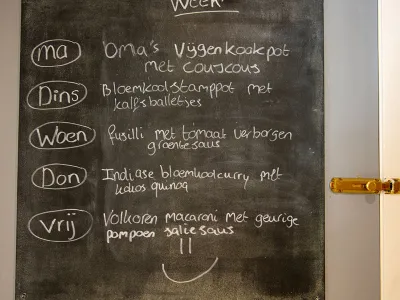 Week
ma Oma's Vijgenkookpot
met couscous
Dins Bloemkoolstamppot met
kalfsballetjes
Woen fusilli met tomaat verborgen
groentesaus
Don Indiase bloemkoolcurry met
kokos quinoa
Vrij Volkoren macaroni met geurige
pompoen saliesaus